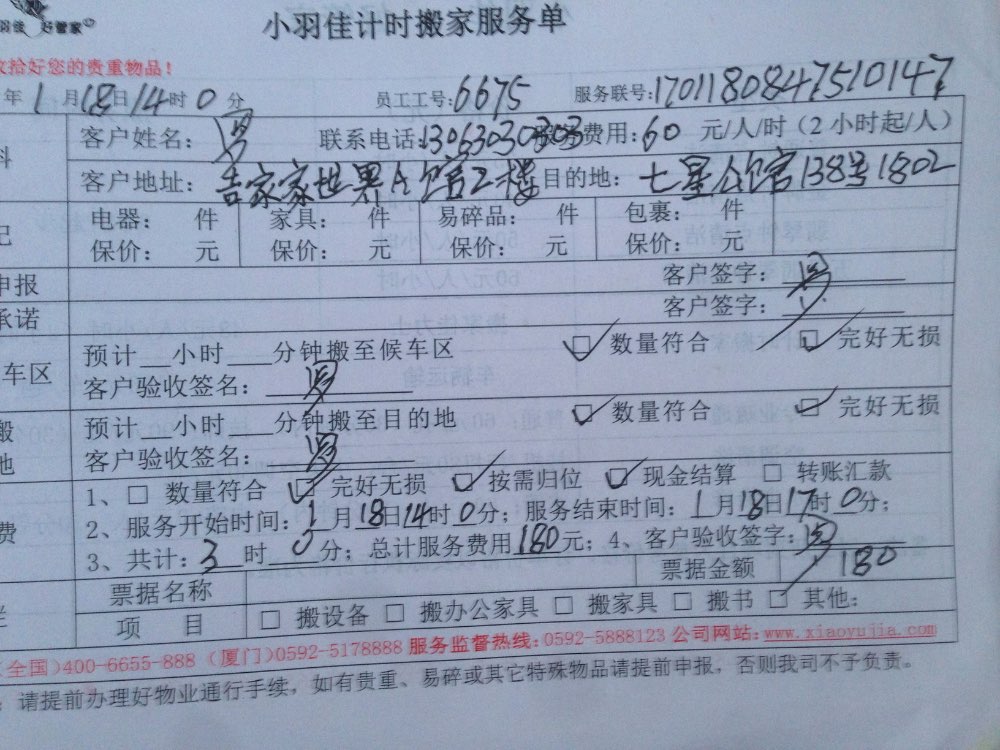 小羽佳计时搬家服务单
好管家
收拾好您的贵重物品！
年1月18日14时0分 员工工号：6675 服务联号：17011808475510147
客户姓名： 联系电话：13063030303 费用：60 元/人/时（2小时起/人）
客户地址：吉家家世界A馆2楼 目的地：七星公馆138号1802
电器： 件 家具： 件 易碎品： 件 包裹： 件
保价： 元 保价： 元 保价： 元 保价： 元
申报 客户签字：
承诺 客户签字：
车区 预计__小时___分钟搬至候车区 ☑ 数量符合 ☑ 完好无损
客户验收签名：
预计__小时___分钟搬至目的地 ☑ 数量符合 ☑ 完好无损
地 客户验收签名：
1、□ 数量符合 ☑ 完好无损 ☑ 按需归位 ☑ 现金结算 □ 转账汇款
费 2、服务开始时间：1月18日14时0分；服务结束时间：1月18日17时0分；
3、共计：3时0分；总计服务费用180元；4、客户验收签字：
票据名称 票据金额 180
项 目 □ 搬设备 □ 搬办公家具 □ 搬家具 □ 搬书 □ 其他：
（全国）400-6655-888（厦门）0592-5178888 服务监督热线：0592-5888123 公司网站：www.xiaoyujia.com
：请提前办理好物业通行手续，如有贵重、易碎或其它特殊物品请提前申报，否则我司不予负责。